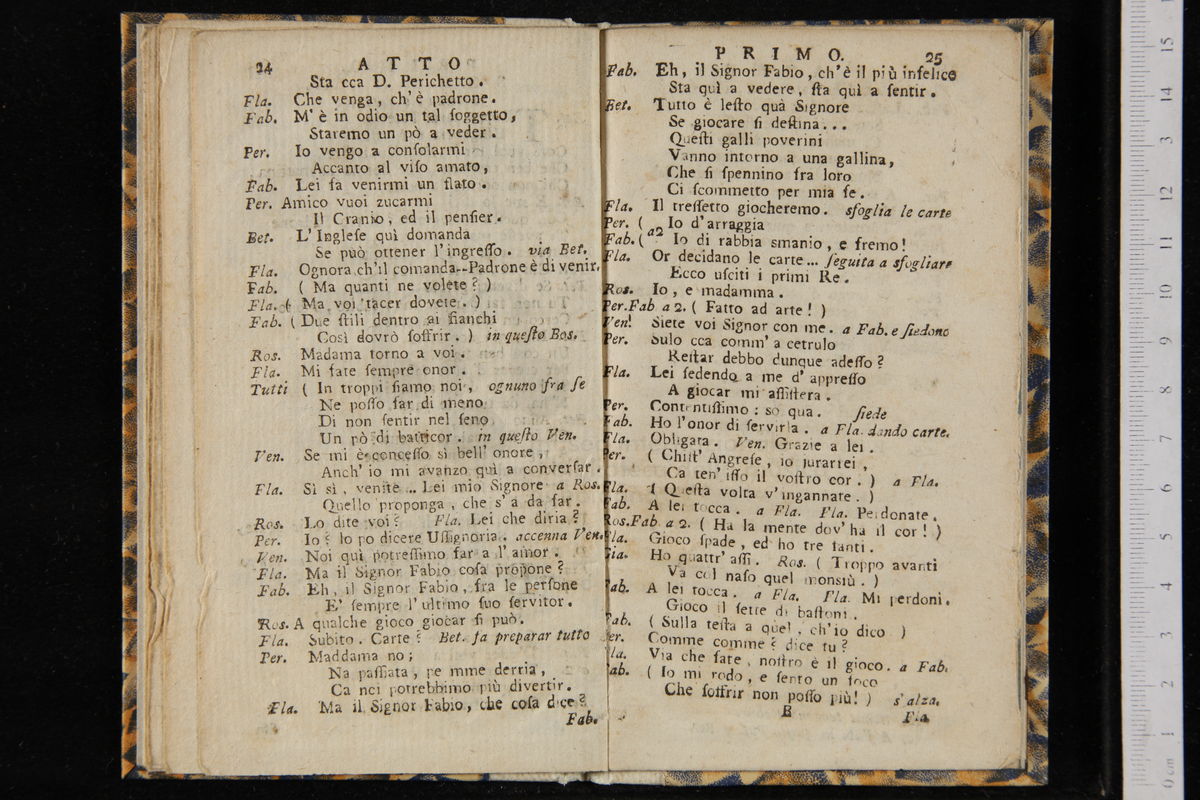 24 ATTO
Sta cca D. Perichetto.
Fla. Che venga, ch'è padrone.
Fab. M'è in odio un tal ſoggetto,
Staremo un pò a veder.
Per. Io vengo a conſolarmi
Accanto al viſo amato,
Fab. Lei fa venirmi un flato.
Per. Amico vuoi zucarmi
Il Cranio, ed il penſier.
Bet. L'Ingleſe quì domanda
Se può ottener l'ingreſſo. via Bet.
Fla. Ognora ch'il comanda--Padrone è di venir.
Fab. ( Ma quanti ne volete? )
Fla. ( Ma voi tacer dovete. )
Fab. ( Due ſtili dentro ai fianchi
Così dovrò ſoffrir. ) in queſto Ros.
Ros. Madama torno a voi.
Fla. Mi fate ſempre onor.
Tutti ( In troppi ſiamo noi, ognuno fra ſe
Ne poſſo far di meno
Di non ſentir nel ſeno
Un pò di batticor. in queſto Ven.
Ven. Se mi è conceſſo sì bell'onore,
Anch'io mi avanzo quì a converſar.
Fla. Sì sì, venite ... Lei mio Signore a Ros.
Quello proponga, che s'a da far.
Ros. Lo dite voi? Fla. Lei che diria?
Per. Io? lo po dicere Uſſignoria. accenna Ven.
Ven. Noi quì potreſſimo far a l'amor.
Fla. Ma il Signor Fabio coſa propone?
Fab. Eh, il Signor Fabio, fra le perſone
E' ſempre l'ultimo ſuo ſervitor.
Ros. A qualche gioco giocar ſi può.
Fla. Subito. Carte? Bet. fa preparar tutto
Per. Maddama no;
Na paſſiata, pe mme derria,
Ca nci potrebbimo più divertir.
Fla. Ma il Signor Fabio, che coſa dice?
Fab.
PRIMO. 25
Fab. Eh, il Signor Fabio, ch'è il più infelice
Sta quì a vedere, ſta quì a ſentir.
Bet. Tutto è leſto quà Signore
Se giocare ſi deſtina...
Queſti galli poverini
Vanno intorno a una gallina,
Che ſi ſpennino fra loro
Ci ſcommetto per mia fe.
Fla. Il treſſetto giocheremo. sfoglia le carte
Per. ( a2 Io d'arraggia
Fab. ( Io di rabbia smanio, e fremo!
Fla. Or decidano le carte... ſeguita a sfogliare
Ecco uſciti i primi Re.
Ros. Io, e madamma.
Per. Fab a 2. ( Fatto ad arte! )
Ven. Siete voi Signor con me. a Fab. e ſiedono
Per. Sulo cca comm'a cetrulo
Reſtar debbo dunque adeſſo?
Fla. Lei ſedendo a me d'appreſſo
A giocar mi aſſiſtera.
Per. Contentiſſimo: so qua. ſiede
Fab. Ho l'onor di ſervirla. a Fla. dando carte.
Fla. Obligata. Ven. Grazie a lei.
Per. ( Chiſt'Angreſe, io jurarriei,
Ca ten'iſſo il voſtro cor. ) a Fla.
Fla. ( Queſta volta v'ingannate. )
Fab. A lei tocca. a Fla. Fla. Perdonate.
Ros. Fab a 2. ( Ha la mente dov'ha il cor! )
Fla. Gioco ſpade, ed ho tre fanti.
Gia. Ho quattr'aſſi. Ros. ( Troppo avanti
Va col naſo quel monsiù. )
Fab. A lei tocca. a Fla. Fla. Mi perdoni.
Gioco il ſette di baſtoni.
Fab. ( Sulla teſta a quel, ch'io dico )
Per. Comme comme? dice tu?
Fla. Via che fate, noſtro è il gioco. a Fab.
Fab. ( Io mi rodo, e ſento un foco
Che ſoffrir non poſſo più! ) s'alza.
B Fla